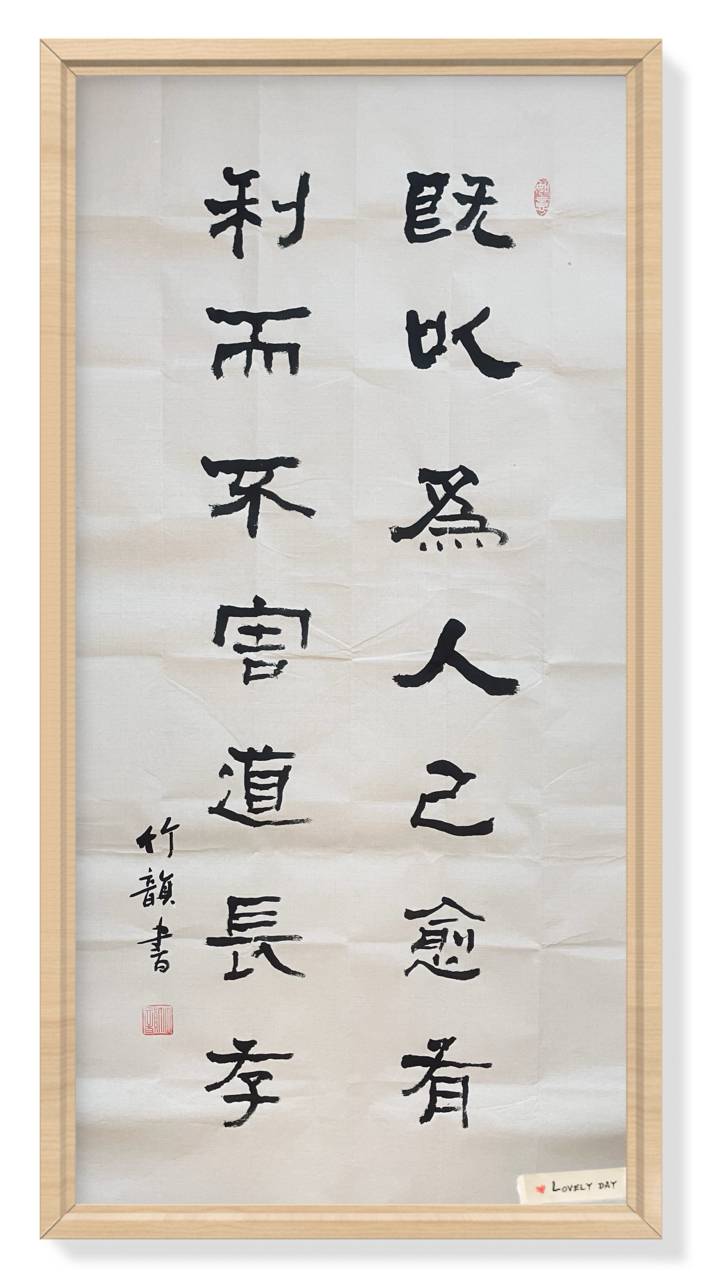 既以為人己愈有
利而不害道長孝
竹韻書
LOVELY DAY